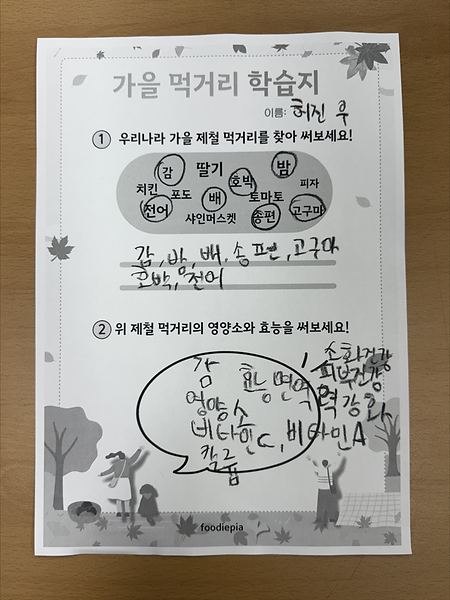 가을 먹거리 학습지
이름: 허진 후
1 우리나라 가을 제철 먹거리를 찾아 써보세요!
감 딸기 밤
치킨 포도 호박 피자
전어 배 토마토 고구마
샤인머스켓 송편
감, 밤, 배, 송편, 고구마
호박, 전어
2 위 제철 먹거리의 영양소와 효능을 써보세요!
감 효능 면역력강화
, 소화건강
피부건강
영양소
비타민C, 비타민A
칼륨
foodiepia